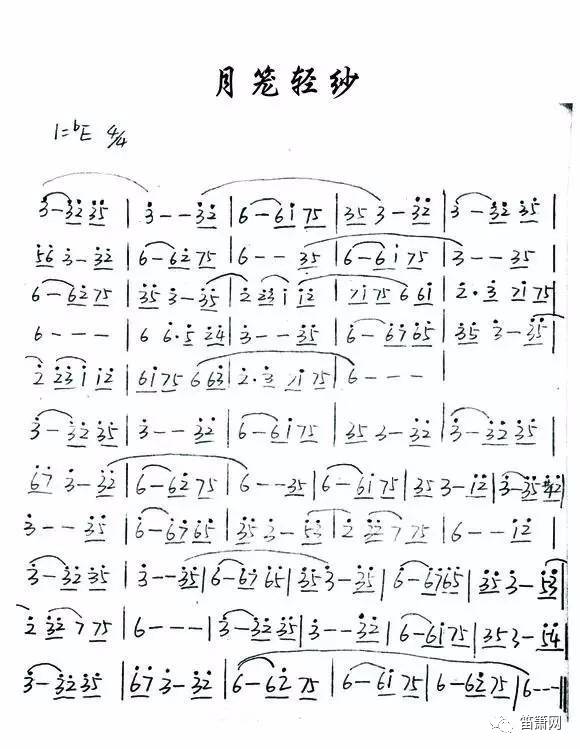 月笼轻纱
1=♭E 4/4
3̇ - 3̇2̇ 3̇5̇ | 3̇ - - 3̇2̇ | 6 - 6i̇ 75 | 35 3 - 3̇2̇ | 3̇ - 3̇2̇ 3̇5̇ |
5̇6̇ 3̇ - 3̇2̇ | 6 - 62̇ 75 | 6 - - 35 | 6 - 6i̇ 75 | 3 - - 35 |
6 - 62̇ 75 | 3̇5̇ 3̇ - 3̇5̇ | 2̇ 2̇3̇ i̇ i̇2̇ | 7i̇ 75 6 6i̇ | 2̇ · 3̇ 7i̇ 75
6 - - - | 6 6̇ · 5̇ 2̇4̇ | 3̇ - - 3̇5̇ | 6̇ - 6̇7̇ 6̇5̇ | 3̇5̇ 3̇ - 3̇5̇
2̇ 2̇3̇ i̇ i̇2̇ | 6i̇ 75 6 63̇ | 2̇ · 3̇ 7i̇ 75 | 6 - - - |
3̇ - 3̇2̇ 3̇5̇ | 3̇ - - 3̇2̇ | 6 - 6i̇ 75 | 35 3 - 3̇2̇ | 3̇ - 3̇2̇ 3̇5̇ |
6̇7̇ 3̇ - 3̇2̇ | 6 - 62̇ 75 | 6 - - 35 | 6 - 6i̇ 75 | 35 3 - i̇2̇ | 3̇ - 3̇5̇ #4̇2̇ |
3̇ - - 3̇5̇ | 6̇ - 6̇7̇ 6̇5̇ | 3̇5̇ 3̇ - 5̇3̇ | 2̇ 3̇2̇ 7 75 | 6 - - i̇2̇ |
3̇ - 3̇2̇ 3̇5̇ | 3̇ - - 3̇5̇ | 6̇ - 6̇7̇ 6̇5̇ | 3̇5̇ 3̇ - 3̇5̇ | 6̇ - 6̇7̇ 6̇5̇ | 3̇5̇ 3̇ - 5̇3̇ |
2̇ 3̇2̇ 7 75 | 6 - - - | 3̇ - 3̇2̇ 3̇5̇ | 3̇ - - 3̇2̇ | 6 - 6i̇ 75 | 35 3 - 5̇4̇ |
3̇ - 3̇2̇ 3̇5̇ | 6̇7̇ 3̇ - 3̇2̇ | 6 - 62̇ 75 | 6 - 6i̇ 75 | 6 - 62̇ 75 | 6 - - - ‖
笛箫网